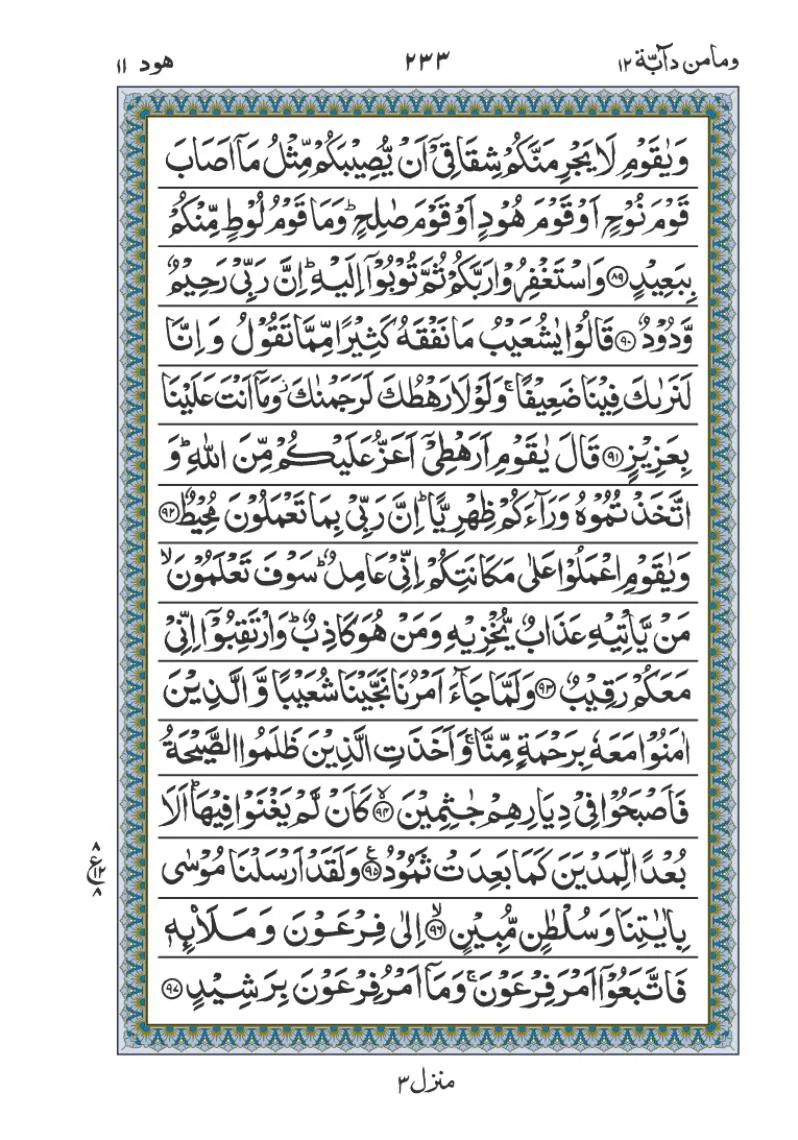 وما من دآبّة ١٢
٢٣٣
هود ١١
وَيٰقَوْمِ لَا يَجْرِمَنَّكُمْ شِقَاقِيْۤ اَنْ يُّصِيْبَكُمْ مِّثْلُ مَاۤ اَصَابَ
قَوْمَ نُوْحٍ اَوْ قَوْمَ هُوْدٍ اَوْ قَوْمَ صٰلِحٍ ؕ وَمَا قَوْمُ لُوْطٍ مِّنْكُمْ
بِبَعِيْدٍ ﴿٨٩﴾ وَاسْتَغْفِرُوْا رَبَّكُمْ ثُمَّ تُوْبُوْۤا اِلَيْهِ ؕ اِنَّ رَبِّيْ رَحِيْمٌ
وَّدُوْدٌ ﴿٩٠﴾ قَالُوْا يٰشُعَيْبُ مَا نَفْقَهُ كَثِيْرًا مِّمَّا تَقُوْلُ وَاِنَّا
لَنَرٰىكَ فِيْنَا ضَعِيْفًا ۚ وَلَوْلَا رَهْطُكَ لَرَجَمْنٰكَ ۫ وَمَاۤ اَنْتَ عَلَيْنَا
بِعَزِيْزٍ ﴿٩١﴾ قَالَ يٰقَوْمِ اَرَهْطِيْۤ اَعَزُّ عَلَيْكُمْ مِّنَ اللّٰهِ ؕ وَ
اتَّخَذْتُمُوْهُ وَرَآءَكُمْ ظِهْرِيًّا ؕ اِنَّ رَبِّيْ بِمَا تَعْمَلُوْنَ مُحِيْطٌ ﴿٩٢﴾
وَيٰقَوْمِ اعْمَلُوْا عَلٰى مَكَانَتِكُمْ اِنِّيْ عَامِلٌ ؕ سَوْفَ تَعْلَمُوْنَ ۙ
مَنْ يَّاْتِيْهِ عَذَابٌ يُّخْزِيْهِ وَمَنْ هُوَ كَاذِبٌ ؕ وَارْتَقِبُوْۤا اِنِّيْ
مَعَكُمْ رَقِيْبٌ ﴿٩٣﴾ وَلَمَّا جَآءَ اَمْرُنَا نَجَّيْنَا شُعَيْبًا وَّالَّذِيْنَ
اٰمَنُوْا مَعَهٗ بِرَحْمَةٍ مِّنَّا ۚ وَاَخَذَتِ الَّذِيْنَ ظَلَمُوا الصَّيْحَةُ
فَاَصْبَحُوْا فِيْ دِيَارِهِمْ جٰثِمِيْنَ ۙ﴿٩٤﴾ كَاَنْ لَّمْ يَغْنَوْا فِيْهَا ؕ اَلَا
بُعْدًا لِّمَدْيَنَ كَمَا بَعِدَتْ ثَمُوْدُ ﴿٩٥﴾ۧ وَلَقَدْ اَرْسَلْنَا مُوْسٰى
بِاٰيٰتِنَا وَسُلْطٰنٍ مُّبِيْنٍ ۙ﴿٩٦﴾ اِلٰى فِرْعَوْنَ وَمَلَا۟ئِهٖ
فَاتَّبَعُوْۤا اَمْرَ فِرْعَوْنَ ۚ وَمَاۤ اَمْرُ فِرْعَوْنَ بِرَشِيْدٍ ﴿٩٧﴾
٨
ع ١٢
٨
منزل ٣